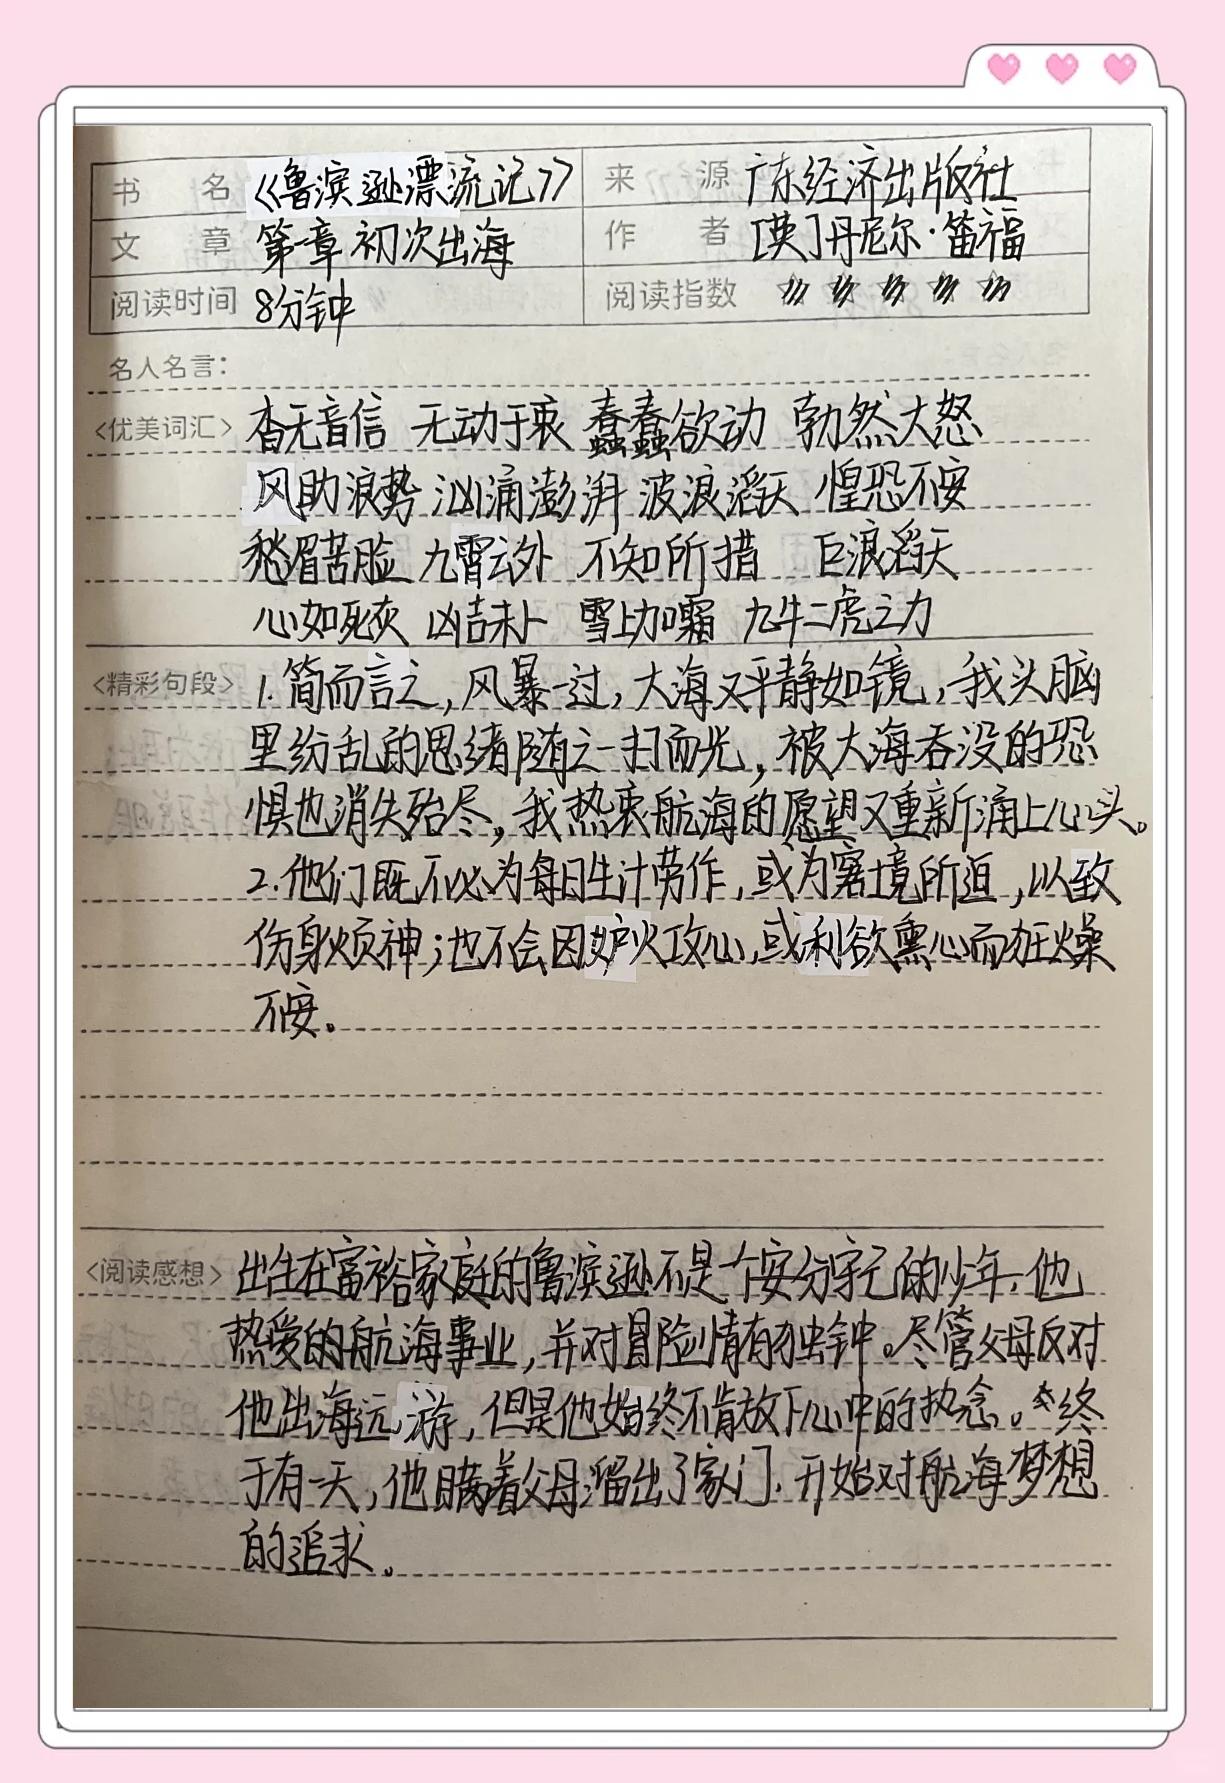 书 名 《鲁滨逊漂流记》 来 源 广东经济出版社
文 章 第一章 初次出海 作 者 [英]丹尼尔·笛福
阅读时间 8分钟 阅读指数
名人名言：
<优美词汇> 杳无音信 无动于衷 蠢蠢欲动 勃然大怒
风助浪势 汹涌澎湃 波浪滔天 惶恐不安
愁眉苦脸 九霄云外 不知所措 巨浪滔天
心如死灰 凶吉未卜 雪上加霜 九牛二虎之力
<精彩句段> 1.简而言之，风暴一过，大海又平静如镜，我头脑
里纷乱的思绪随之一扫而光，被大海吞没的恐
惧也消失殆尽，我热衷航海的愿望又重新涌上心头。
2.他们既不必为每日生计劳作，或为窘境所迫，以致
伤身烦神；也不会因妒火攻心，或利欲熏心而狂燥
不安。
<阅读感想> 出生在富裕家庭的鲁滨逊不是一个安分守己的少年，他
热爱的航海事业，并对冒险情有独钟。尽管父母反对
他出海远游，但是他始终不肯放下心中的执念。终
于有一天，他瞒着父母溜出了家门，开始对航海梦想
的追求。